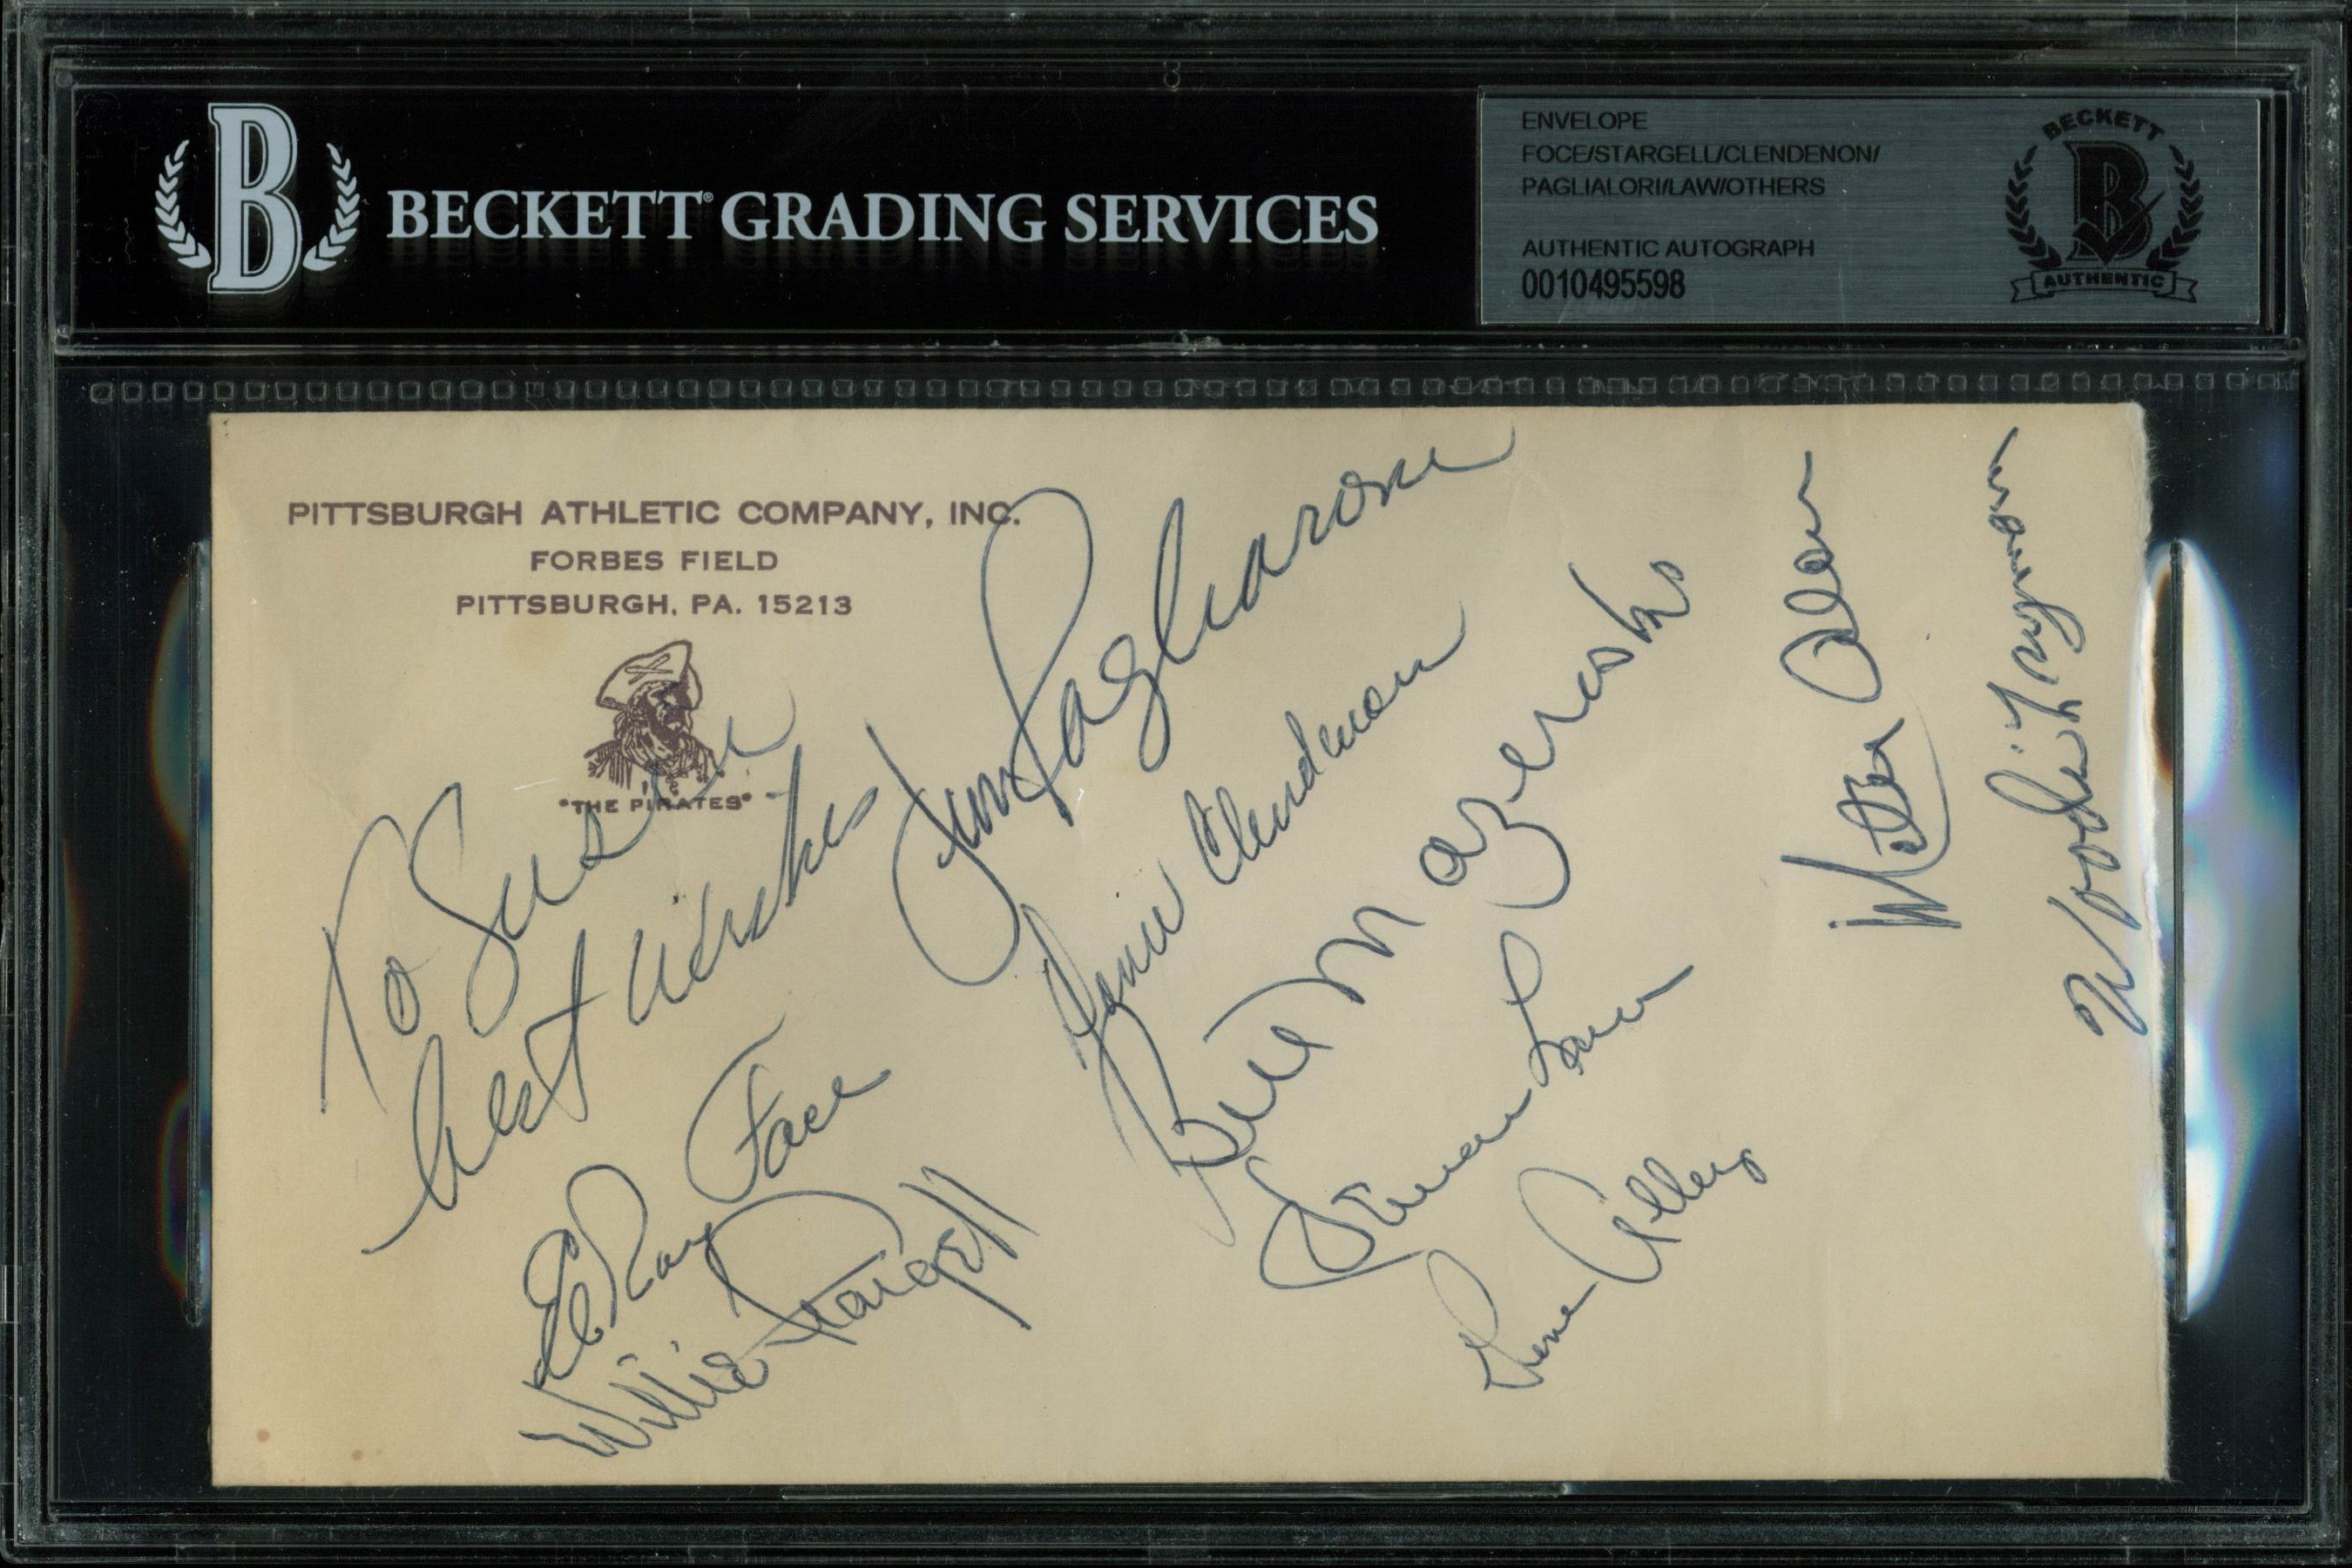 BECKETT® GRADING SERVICES
ENVELOPE
FOCE/STARGELL/CLENDENON/
PAGLIALORI/LAW/OTHERS
AUTHENTIC AUTOGRAPH
0010495598
BECKETT
B
AUTHENTIC
PITTSBURGH ATHLETIC COMPANY, INC.
FORBES FIELD
PITTSBURGH, PA. 15213
"THE PIRATES"
To Susan
best wishes
Jim Pagliaroni
Donn Clendenon
Bill Mazeroski
Vernon Law
Gene Alley
El Roy Face
Willie Stargell
Woodie